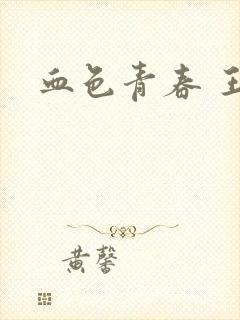 血色青春 王
黄馨